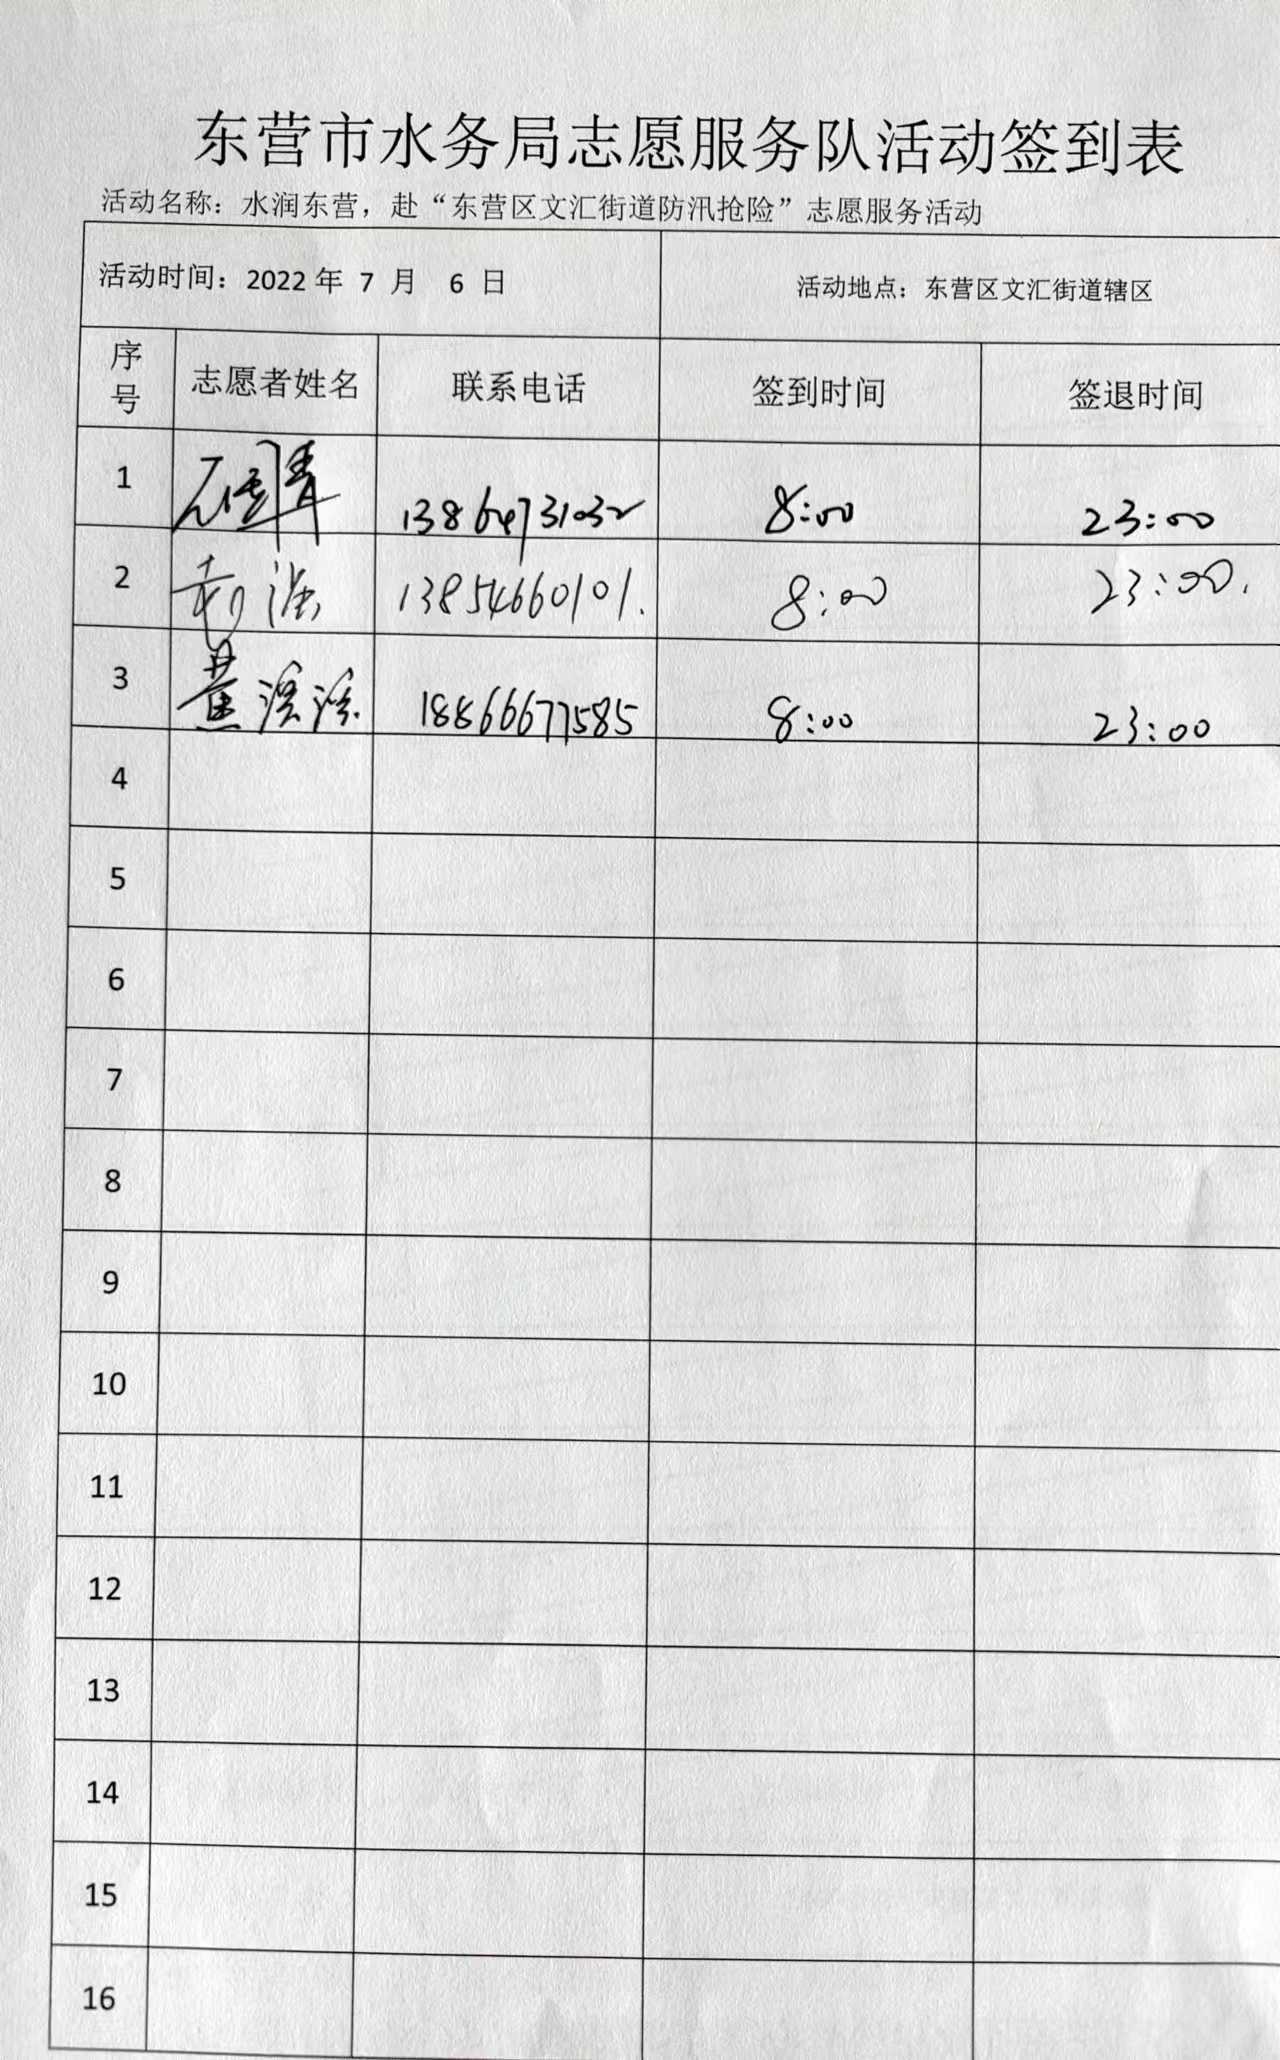 东营市水务局志愿服务队活动签到表
活动名称：水润东营，赴“东营区文汇街道防汛抢险”志愿服务活动
活动时间：2022 年 7 月 6 日 活动地点：东营区文汇街道辖区
序号 志愿者姓名 联系电话 签到时间 签退时间
1 8:00 23:00
2 13854660101. 8:00 23:00.
3 黄溪溪 18866677585 8:00 23:00
4
5
6
7
8
9
10
11
12
13
14
15
16